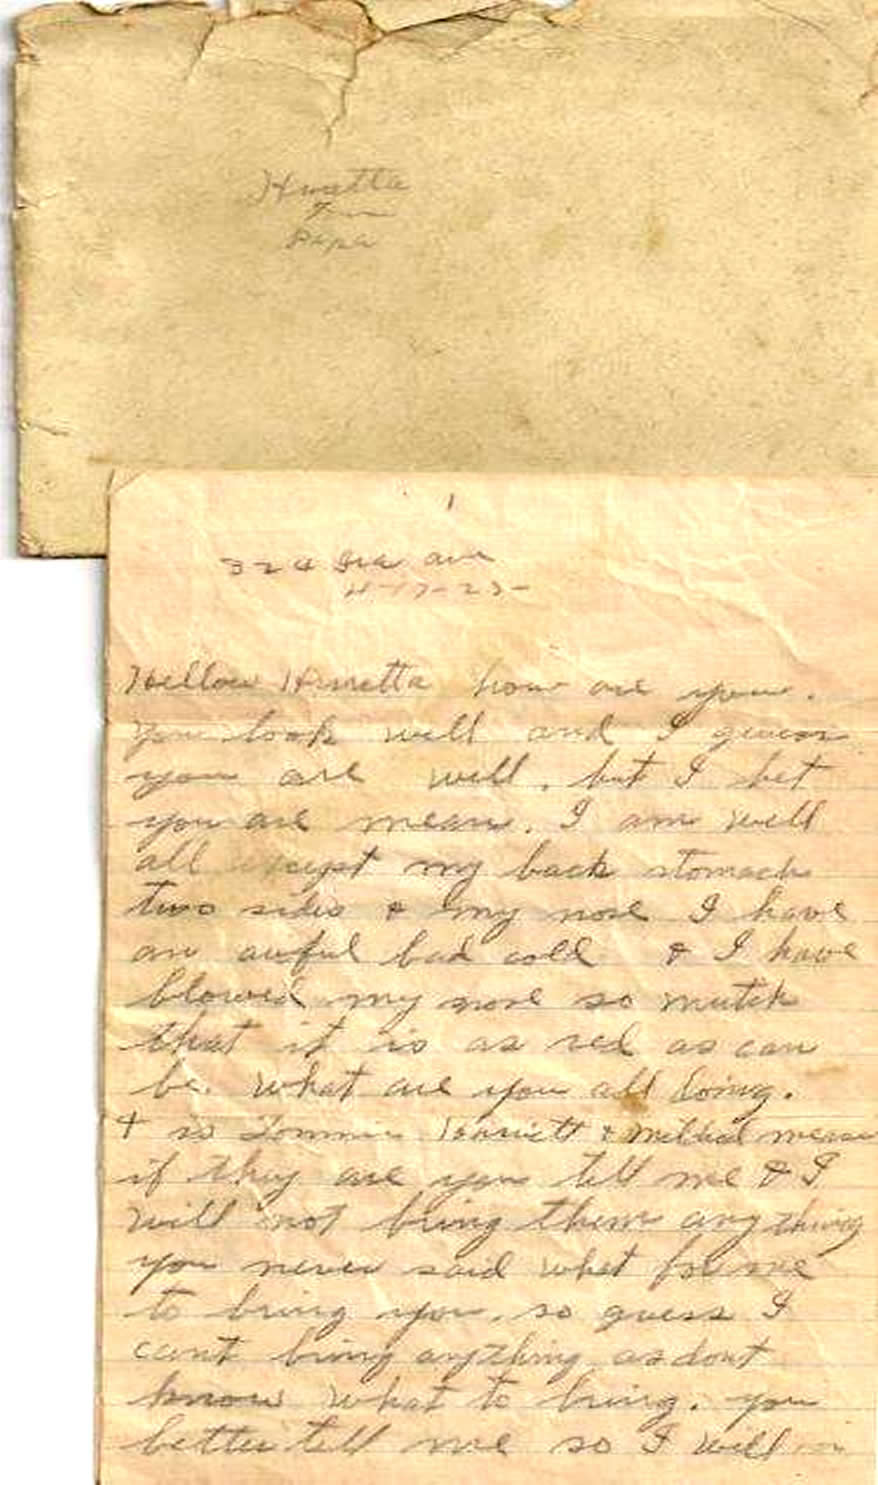 Henretta
From
Papa
1
324 Ave
4-17-23-
Hellow Henretta how are you.
you look well and I guess
you are well, but I bet
you are mean. I am well
all except my back stomach
two sides & my nose I have
an awful bad cold & I have
blowed my nose so mutch
that it is as red as can
be. what are you all doing.
+ is Tommie Harriett & Mildred mean
if they are you tell me & I
will not bring them any thing
you never said what for me
to bring you. so guess I
cant bring anything as dont
know what to bring. you
better tell me so I will